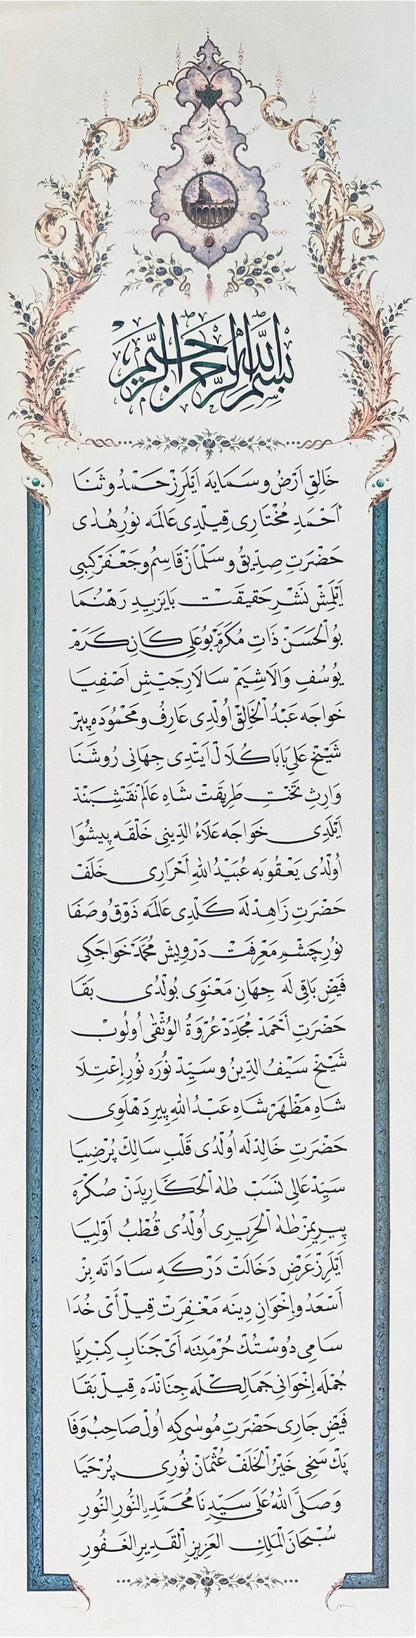 بسم الله الرحمن الرحيم
خَالِقِ اَرْضُ و سَمَايَه اَيْلَرِزْ حَمْدُ و ثَنَا
اَحْمَدِ مُخْتَارِى قِيلْدِى عَالَمَه نُورِ هُدٰى
حَضْرَتِ صِدِّيقُ و سَلْمَانْ قَاسِمُ و جَعْفَرْ كِبِى
اَيْلَمِشْ نَشْرِ حَقِيقَتْ بَايَزِيدِ رَهْنُمَا
بُو الْحَسَنْ ذَاتِ مُكَرَّمْ بُو عَلِى كَانِ كَرَمْ
يُوسُفِ وَالَا شِيَمْ سَالَارِ جَيْشِ اَصْفِيَا
خَواجَه عَبْدُ الْخَالِقْ اُولْدِى عَارِفُ و مَحْمُودَه پِيرْ
شَيْخْ عَلِى بَابَا كُلَالْ اَيْتْدِى جِهَانِى رُوشَنَا
وَارِثِ تَخْتِ طَرِيقَتْ شَاهِ عَالَمْ نَقْشِبَنْدْ
اَيْلَدِى خَواجَه عَلَاءُ الدِّينِى خَلْقَه پِيشْوَا
اُولْدِى يَعْقُوبَه عُبَيْدُ اللهِ اَحْرَارِى خَلَفْ
حَضْرَتِ زَاهِدْلَه كَلْدِى عَالَمَه ذَوْقُ و صَفَا
نُورِ چَشْمِ مَعْرِفَتْ دَرْوِيشْ مُحَمَّدْ خَواجَكِى
فَيْضِ بَاقِى لَه جِهَانِ مَعْنَوِى بُولْدِى بَقَا
حَضْرَتِ اَحْمَدْ مُجَدِّدْ عُرْوَةُ الْوُثْقٰى اُولُوبْ
شَيْخْ سَيْفُ الدِّينُ و سَيِّدْ نُورَه نُورِ اِعْتِلَا
شَاهِ مَظْهَرْ شَاهِ عَبْدُ اللهِ پِيرِ دَهْلَوِى
حَضْرَتِ خَالِدْلَه اُولْدِى قَلْبِ سَالِكْ پُرْضِيَا
سَيِّدِ عَالِى نَسَبْ طٰهَ الْحَكَّارِيدَنْ صُكْرَه
پِيرِيمِزْ طٰهَ الْحَرِيرِى اُولْدِى قُطْبُ اَوْلِيَا
اَيْلَرِزْ عَرْضِ دَخَالَتْ دَرْكَهِ سَادَاتَه بِزْ
اَسْعَدُ و اِخْوَانِ دِينَه مَغْفِرَتْ قِيلْ اَىْ خُدَا
سَامِى دُوسْتُكْ حُرْمَتِنَه اَىْ جَنَابِ كِبْرِيَا
جُمْلَه اِخْوَانِى جَمَالِكْلَه جِنَانْدَه قِيلْ بَقَا
فَيْضِ جَارِى حَضْرَتِ مُوسٰى كِه اُولْ صَاحِبْ وَفَا
پَكْ سَخِى خَيْرُ الْخَلَفْ عُثْمَانْ نُورِى پُرْحَيَا
وَصَلَّى اللهُ عَلٰى سَيِّدِنَا مُحَمَّدٍ النُّورِ النُّورِ
سُبْحَانَ الْمَلِكِ الْعَزِيزِ الْقَدِيرِ الْغَفُورِ